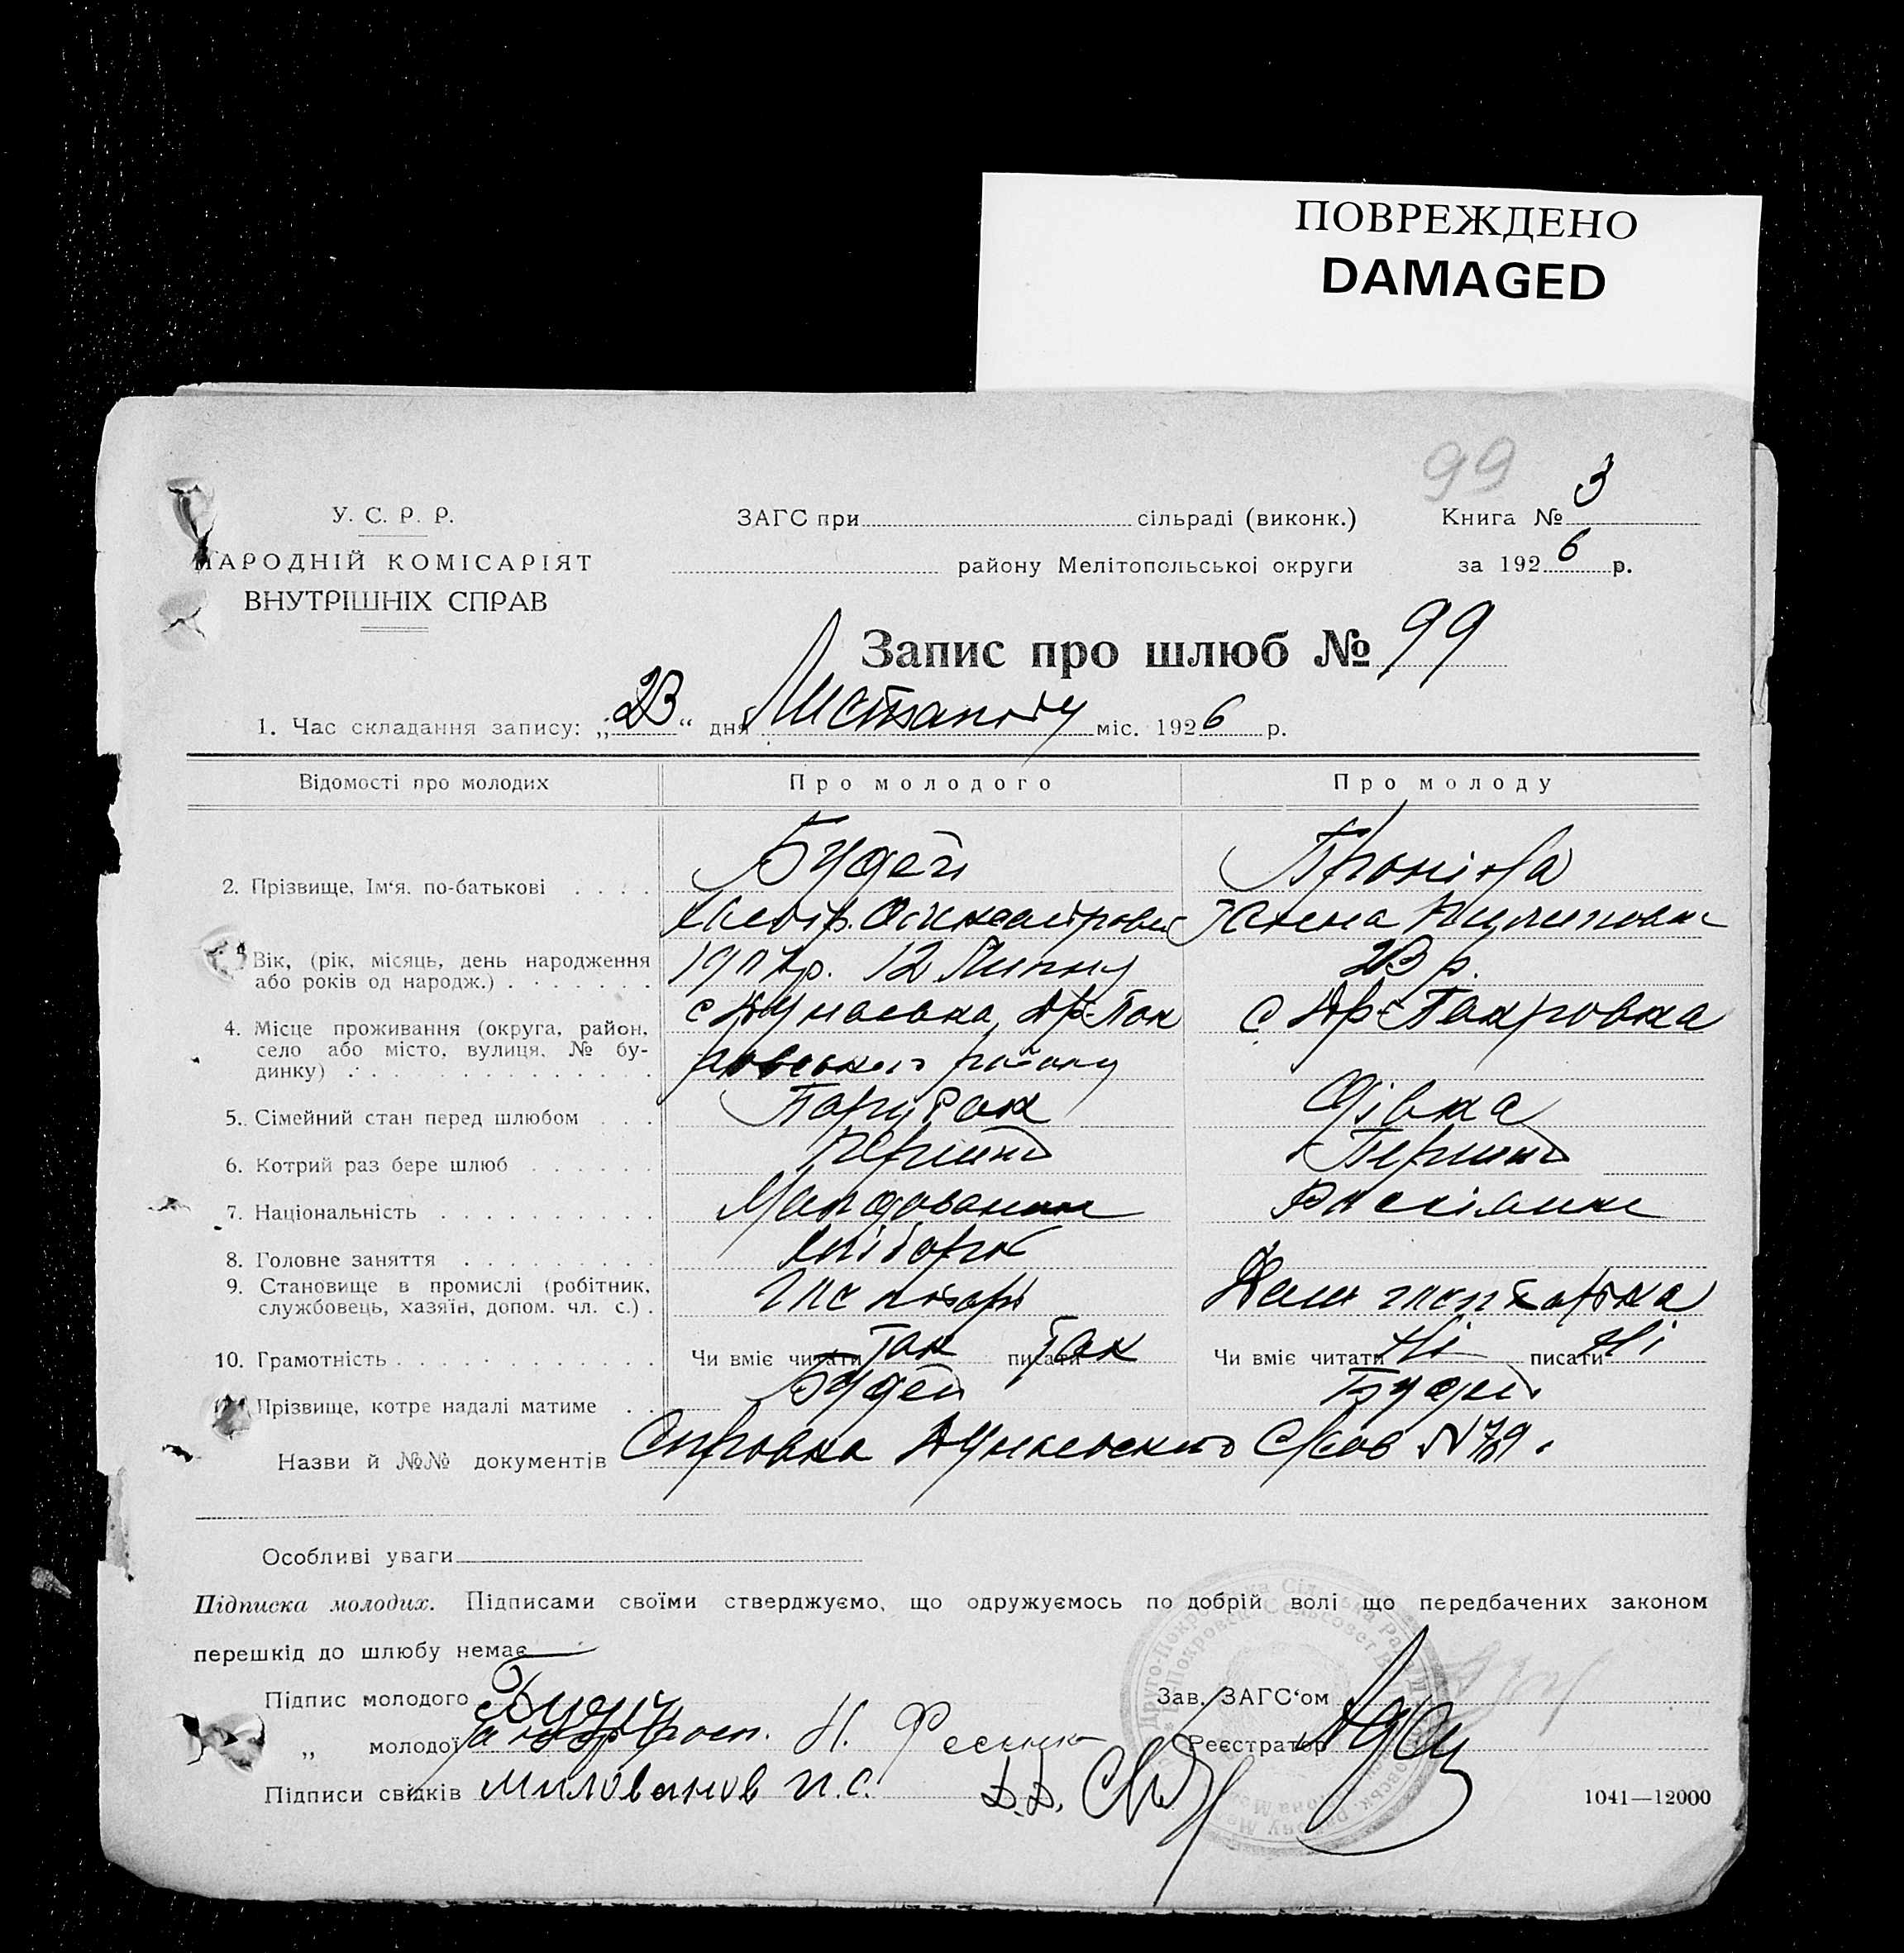 ПОВРЕЖДЕНО
DAMAGED
99
У. С. Р. Р.
НАРОДНІЙ КОМІСАРІЯТ
ВНУТРІШНІХ СПРАВ
ЗАГС при сільраді (виконк.)
району Мелітопольської округи
Книга № 3
за 1926 р.
Запис про шлюб № 99
1. Час складання запису: „23“ дня Листопаду міс. 1926 р.
Відомості про молодих Про молодого Про молоду
2. Прізвище, Ім'я, по-батькові Будей
Пилиповна
Вік, (рік, місяць, день народження або років од народж.) 1907 р. 12 Липню 23 р.
4. Місце проживання (округа, район, село або місто, вулиця, № будинку) с Дунаевка, Др-Пок
ровського району
с Др-Покровка
5. Сімейний стан перед шлюбом Парубок Дівка
6. Котрий раз бере шлюб Перший Перший
7. Національність Молдованин
8. Головне заняття хлібороб
9. Становище в промислі (робітник, службовець, хазяїн, допом. чл. с.)
10. Грамотність Чи вміє читати Так писати Так Чи вміє читати Ні писати Ні
Прізвище, котре надалі матиме Будей Будей
Назви й №№ документів Справка Дунаевского С/Сов N 789.
Особливі уваги
Підписка молодих. Підписами своїми стверджуємо, що одружуємось по добрій волі що передбачених законом
перешкід до шлюбу немає
Підпис молодого Будей
Зав. ЗАГС'ом
„ молодої
Реєстратор
Підписи свідків Милованов И.С.
1041—12000